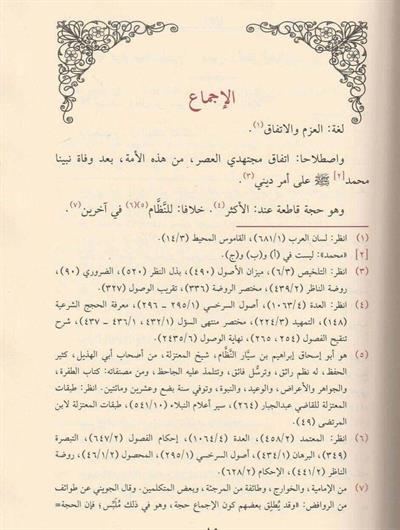 الإجماع
لغة: العزم والاتفاق(١).
واصطلاحا: اتفاق مجتهدي العصر، من هذه الأمة، بعد وفاة نبينا
محمد[٢] ﷺ على أمر ديني(٣).
وهو حجة قاطعة عند: الأكثر(٤). خلافا: للنَّظَّام(٥)(٦) في آخرين(٧).
(١) انظر: لسان العرب (٦٨١/١)، القاموس المحيط (١٤/٣).
[٢] «محمد»: ليست في (أ) و(ب) و(ج).
(٣) انظر: التلخيص (٦/٣)، ميزان الأصول (٤٩٠)، بذل النظر (٥٢٠)، الضروري (٩٠)،
روضة الناظر (٤٣٩/٢)، مختصر الروضة (٣٣٦)، تقريب الوصول (٣٢٧).
(٤) انظر: العدة (١٠٦٣/٤)، أصول السرخسي (٢٩٥/١ – ٢٩٦)، معرفة الحجج الشرعية
(١٤٨)، التمهيد (٢٢٤/٣)، مختصر منتهى السؤل (٤٣٢/١، ٤٣٦/١ – ٤٣٧)، شرح
تنقيح الفصول (٢٥٤، ٢٦٥)، نهاية الوصول (٢٤٣٥/٦).
(٥) هو أبو إسحاق إبراهيم بن سيَّار النَّظَّام، شيخ المعتزلة، من أصحاب أبي الهذيل، كثير
الحفظ، له نظم رائق، وترسُّل فائق، وتتلمذ عليه الجاحظ، ومن مصنفاته: كتاب الطفرة،
والجواهر والأعراض، والوعيد، والنبوة، وتوفي سنة بضع وعشرين ومائتين. انظر: طبقات
المعتزلة للقاضي عبدالجبار (٢٦٤)، سير أعلام النبلاء (٥٤١/١٠)، طبقات المعتزلة لابن
المرتضى (٤٩).
(٦) انظر: المعتمد (٤٥٨/٢)، العدة (١٠٦٤/٤)، إحكام الفصول (٦٤٧/٢)، التبصرة
(٣٤٩)، البرهان (٤٣٤/١)، أصول السرخسي (٢٩٥/١)، المحصول (٤٦/١/٢)، روضة
الناظر (٤٤١/٢)، الإحكام (٦٢٨/٢).
(٧) من الإمامية، والخوارج، وطائفة من المرجئة، وبعض المتكلمين. وقال الجويني عن طوائف
من الروافض: «وقد يُطلِق بعضهم كون الإجماع حجة، وهو في ذلك مُلَبِّس؛ فإن الحجة=